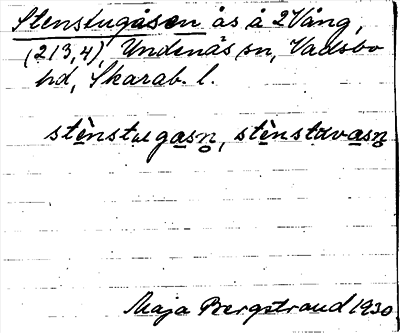 Stenstugåsen ås å 2 Vång,
(213,4), Undenäs sn, Vadsbo
hd, Skarab. l.
stènstugasn̥, stènstuvasn̥
Maja Bergstrand 1930